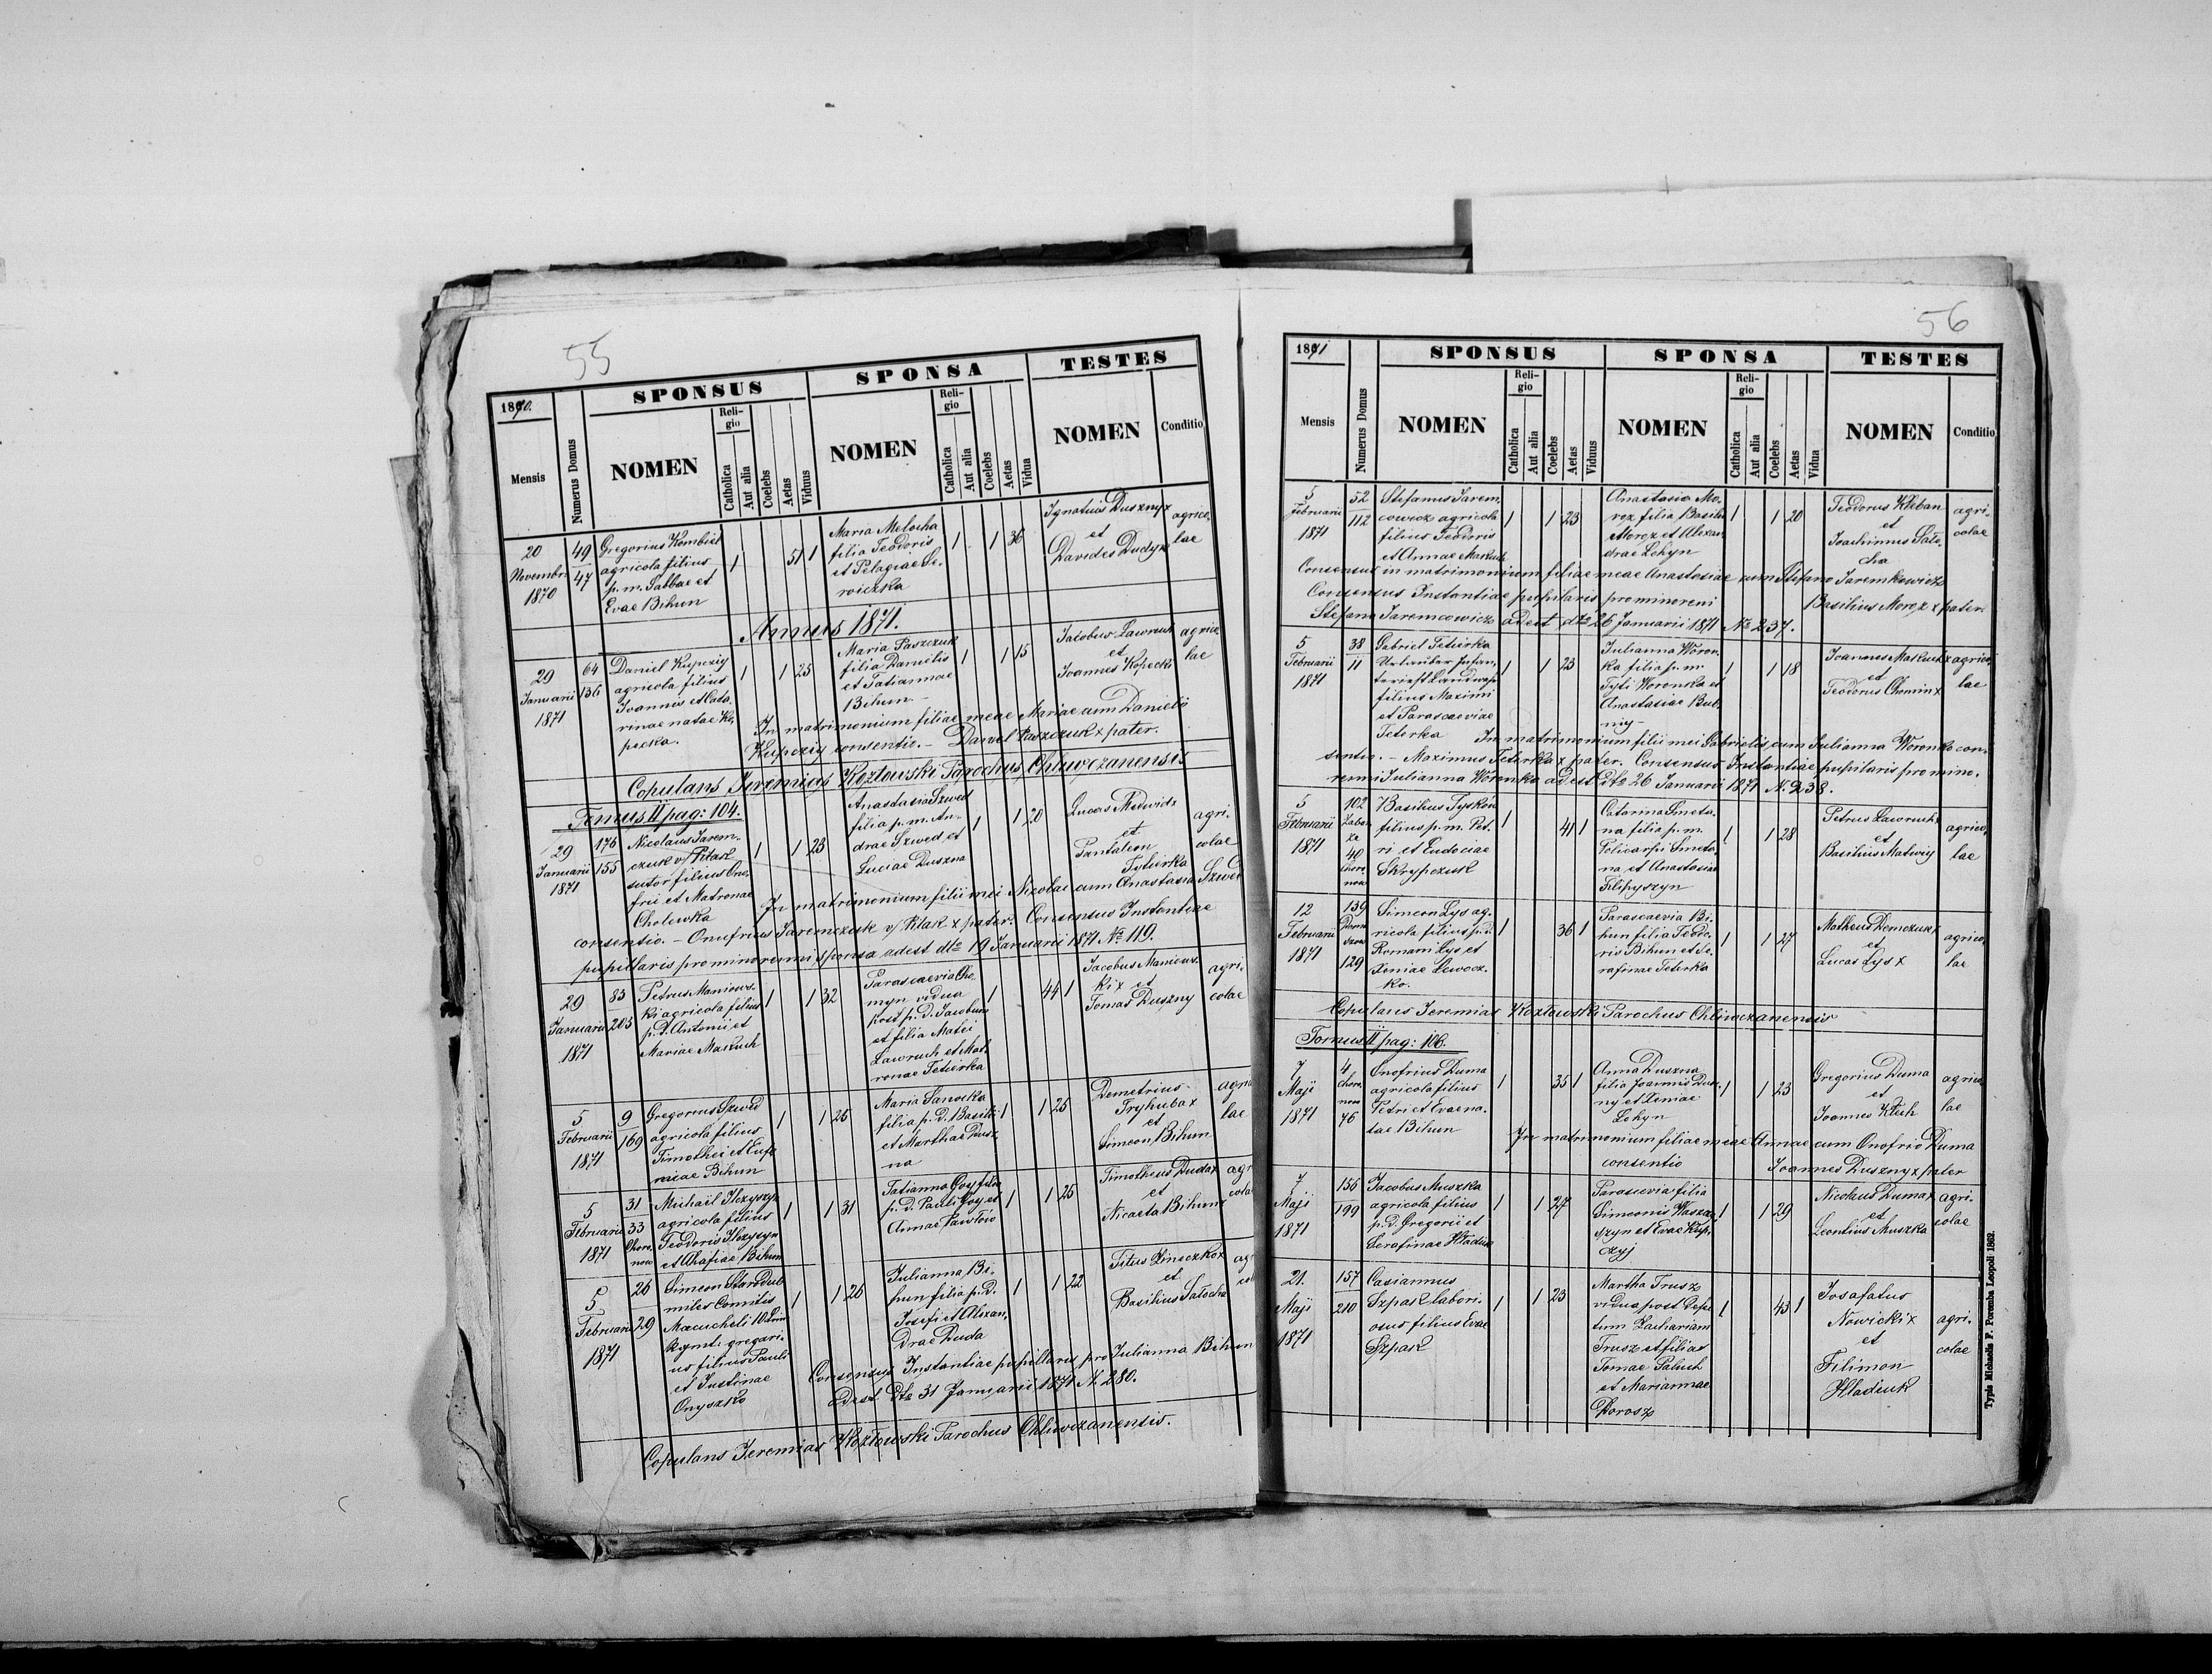 55
1870.
Mensis
Numerus Domus
SPONSUS
NOMEN
Religio
Catholica
Aut alia
Coelebs
Aetas
Viduus
SPONSA
NOMEN
Religio
Catholica
Aut alia
Coelebs
Aetas
Vidua
TESTES
NOMEN
Conditio
20
Novembr.
1870
49
47
Gregorius Kombiel
agricola filius
p. m. Sabbae et
Evae Bihun
1
51 1
Maria Melocha
filia Teodoris
et Pelagiae Se-
roiczka
1
1 36
Ignatius Duszny x
et
Davides Dudyx
agrico-
lae
Annus 1871.
29
Januarii
1871
64
136
Daniel Kupczij
agricola filius
Joannis et Cata-
rinae natae Ko-
pecka.
1
1 25
Maria Paszczuk
filia Danielis
et Tatiannae
Bihun -
1
1 15
Jacobus Lawruch
et
Joannes Kopecki
agrico-
lae
In matrimonium filiae meae Mariae cum Daniele
Kupczij consentio. - Daniel Paszczuk x pater.
Copulans Jeremias Kozłowski Parochus Chliwczanensis
Tomus II pag: 104.
29
Januarii
1871
176
155
Nicolaus Jarem-
czuk v/ Ptasz
sutor filius Ono-
frii et Matronae
Cholewka
1
1 23
Anastasia Szwed
filia p. m. An-
drae Szwed et
Luciae Duszna
1
1 20
Lucas Medwidx
et
Pantaleon
Tetierka
agri-
colae
In matrimonium filii mei Nicolai cum Anastasia Szwed
consentio. - Onufrius Jaremczuk v/ Ptak x pater. Consensus Instantiae
pupillaris pro minorenni sponsa adest dto 19 Januarii 1871 № 119.
29
Januarii
1871
83
203
Petrus Maniows-
ki agricola filius
p. d. Antonii et
Mariae Makuch
1
1 32
Parascaevia Cho-
myn vidua
post p. d. Jacobum
et filia Matei
Lawruch et Mat-
ronae Tetierka
1
44 1
Jacobus Maniows-
ki x et
Tomas Duszny
agri-
colae
5
Februarii
1871
9
169
Gregorius Szwed
agricola filius
Timothei et Eufe-
miae Bihun
1
1 26
Maria Sanocka
filia p. d. Basilii
et Marthae Dusz
na
1
1 25
Demetrius
Tryhuba x
et
Simeon Bihun
agrico
lae
5
Februarii
1871
31
33
Chore-
now
Michail Ilczyszyn
agricola filius
Teodoris Ilczyszyn
et Ahafiae Bihun
1
1 31
Tatianna Goy filia
p. d. Pauli Goy et
Annae Pawłow
1
1 25
Timotheus Dudax
et
Nicaeta Bihun
agri
colae
5
Februarii
1871
26
29
Simeon Starodub
miles Comitis
Macucheli 10
Rgmt. gregari-
us filius Pauli
et Justinae
Onyszko
1
1 26
Julianna Bi-
hun filia p. d.
Josefi et Alexan-
drae Duda
1
1 22
Titus Zineczko x
et
Basilius Satocha
Consensus Instantiae pupillaris pro Julianna Bihun
adest dto 31 Januarii 1871 N. 280.
Copulans Jeremias Kozłowski Parochus Chliwczanensis.
56
1871
Mensis
Numerus Domus
SPONSUS
NOMEN
Religio
Catholica
Aut alia
Coelebs
Aetas
Viduus
SPONSA
NOMEN
Religio
Catholica
Aut alia
Coelebs
Aetas
Vidua
TESTES
NOMEN
Conditio
5
Februarii
1871
52
112
Stefanus Jarem-
cowicz agricola
filius Teodoris
et Annae Makuch
1
1 23
Anastasia Mo-
roz filia Basilii
Moroz et Alexan-
drae Lehyn
1
1 20
Teodorus Kleban
et
Joachimus Sato-
cha
agri-
colae
Consensus in matrimonium filiae meae Anastasiae cum Stefano Jaremkowicz
Consensus Instantiae pupilaris pro minoreni Basilius Moroz x pater.
Stefano Jaremcowicz adest dto 26 Januarii 1871 № 237.
5
Februarii
1871
38
11
Gabriel Tetierka
Urlauber Infan-
terist Landwap
filius Maximi
et Parascaeviae
Teterka
1
1 23
Julianna Woron-
ka filia p. m.
Tyti Woronka et
Anastasiae Bub-
nij -
1
1 18
Joannes Makuch x
et
Teodorus Chomin x
agrico-
lae
In matrimonium filii mei Gabrielis cum Julianna Woronko con-
sentio. - Maximus Teterka x pater. Consensus Instantiae pupilaris pro mino-
renni Julianna Woronka adest dto 26 Januarii 1871 N. 238.
5
Februarii
1871
102
40
Chore-
now
Basilius Tyskow
filius p. m. Pet-
ri et Eudociae
Skrypczuk
1
41 1
Catarina Smeta-
na filia p. m.
Policarpi Smeta-
na et Anastasiae
Filipyszyn
1
1 28
Petrus Lawruch x
et
Basilius Matwiy
agrico-
lae
12
Februarii
1871
139
129
Simeon Lys ag-
ricola filius p. d.
Romani Lys et
Xeniae Lewocz-
ko.
1
36 1
Parascaevia Bi-
hun filia Teodo-
ris Bihun et Se-
rafinae Teterka
1
1 27
Matheus Demczuk x
et
Lucas Lys x
agrico-
lae
Copulans Jeremias Kozłowski Parochus Chliwczanensis
Tomus II pag: 106.
7
Maji
1871
4
chore-
now
76
Onofrius Duma
agricola filius
Petri et Evae na-
tae Bihun
1
35 1
Anna Duszna
filia Joannis Dusz-
ny et Xeniae
Lehyn
1
1 23
Gregorius Duma
et
Joannes Klich
agrico
lae
In matrimonium filiae meae Annae cum Onofrio Duma
consentio Joannes Duszny x pater
7
Maji
1871
156
199
Jacobus Muszka
agricola filius
p. d. Gregorii et
Serafinae Hladiuk
1
1 27
Parascevia filia
Simeonis Waszczy-
szyn et Evae Kup-
czyj
1
1 29
Nicolaus Duma x
et
Leontius Muszka
agri-
colae
21.
Maji
1871
157
210
Casiannus
Szpak labori-
osus filius Evae
Szpak
1
1 23
Martha Trusz
vidua post defu-
ctum Zachariam
Trusz et filia
Tomae Paluch
et Mariannae
Dorosz
1
43 1
Josafatus
Nowicki x
et
Filimon
Hladiuk
agri-
colae
Typis Michaelis F. Poremba Leopoli 1862.